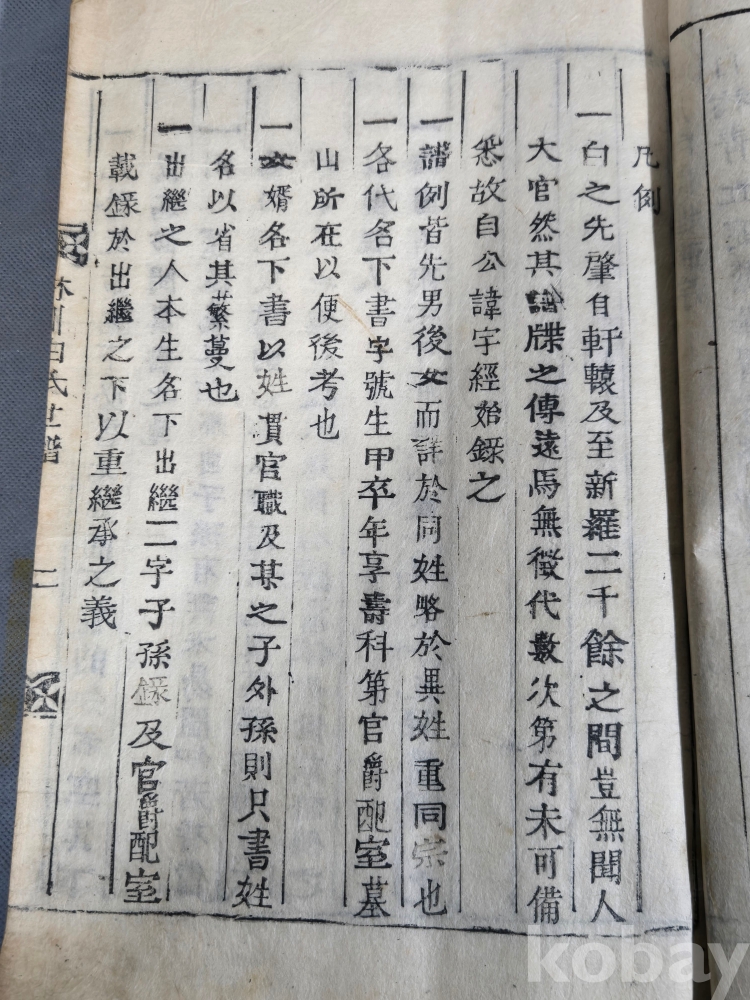 凡例
一白之先肇自軒轅及至新羅二千餘之間豈無聞人
大官然其譜牒之傳遠焉無徵代數次第有未可備
悉故自公諱宇經始錄之
一譜例皆先男後女而詳於同姓略於異姓重同宗也
一各代名下書字號生甲卒年享壽科第官爵配室墓
山所在以便後考也
一女婿名下書以姓貫官職及某之子外孫則只書姓
名以省其蘩蔓也
一出繼之人本生名下出繼二字子孫錄及官爵配室
載錄於出繼之下以重繼承之義
川白氏世譜
二
kobay